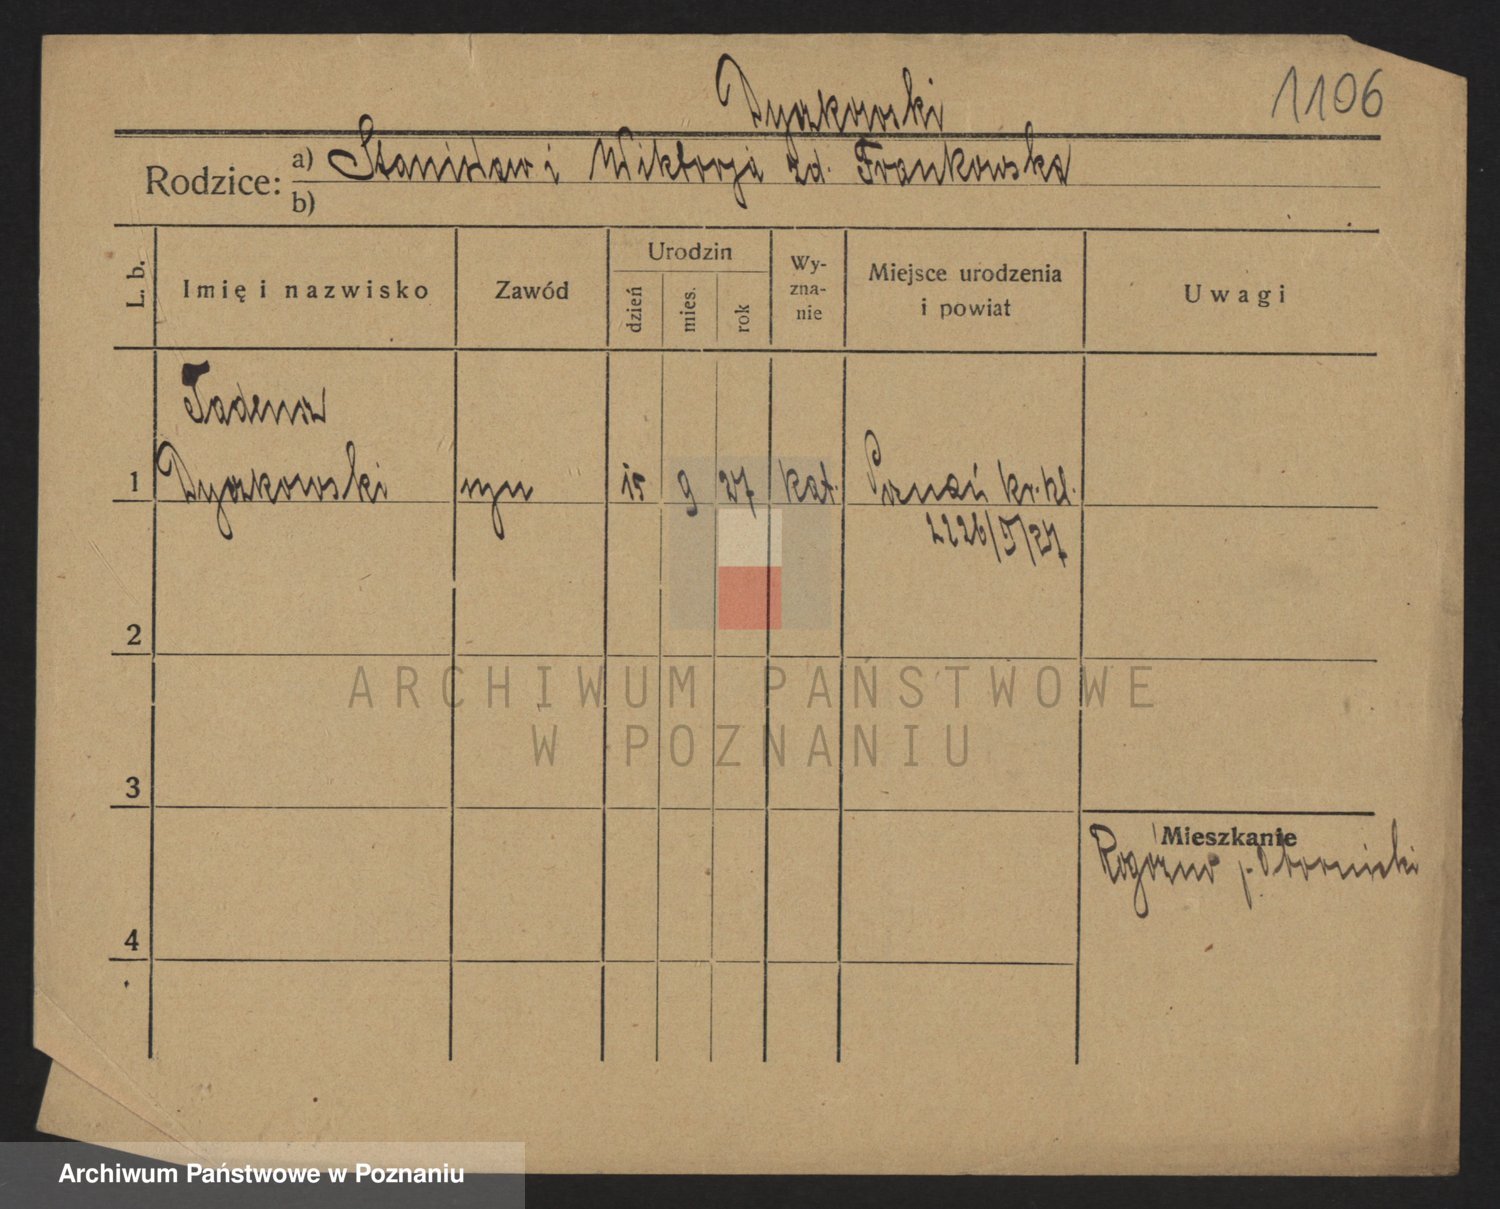 Dyzkowski
1106
Rodzice: a) Stanisław i Wiktorja zd. Frankowska
b)
L. b.
Imię i nazwisko
Zawód
Urodzin
dzień
mies.
rok
Wy-
zna-
nie
Miejsce urodzenia
i powiat
Uwagi
Tadeusz
1 Dyzkowski syn 15 9 27 kat. Poznań kr. kl.
2226/V/27
2
ARCHIWUM PAŃSTWOWE
W POZNANIU
3
Mieszkanie
Rogoźno p. Obornicki
4
Archiwum Państwowe w Poznaniu